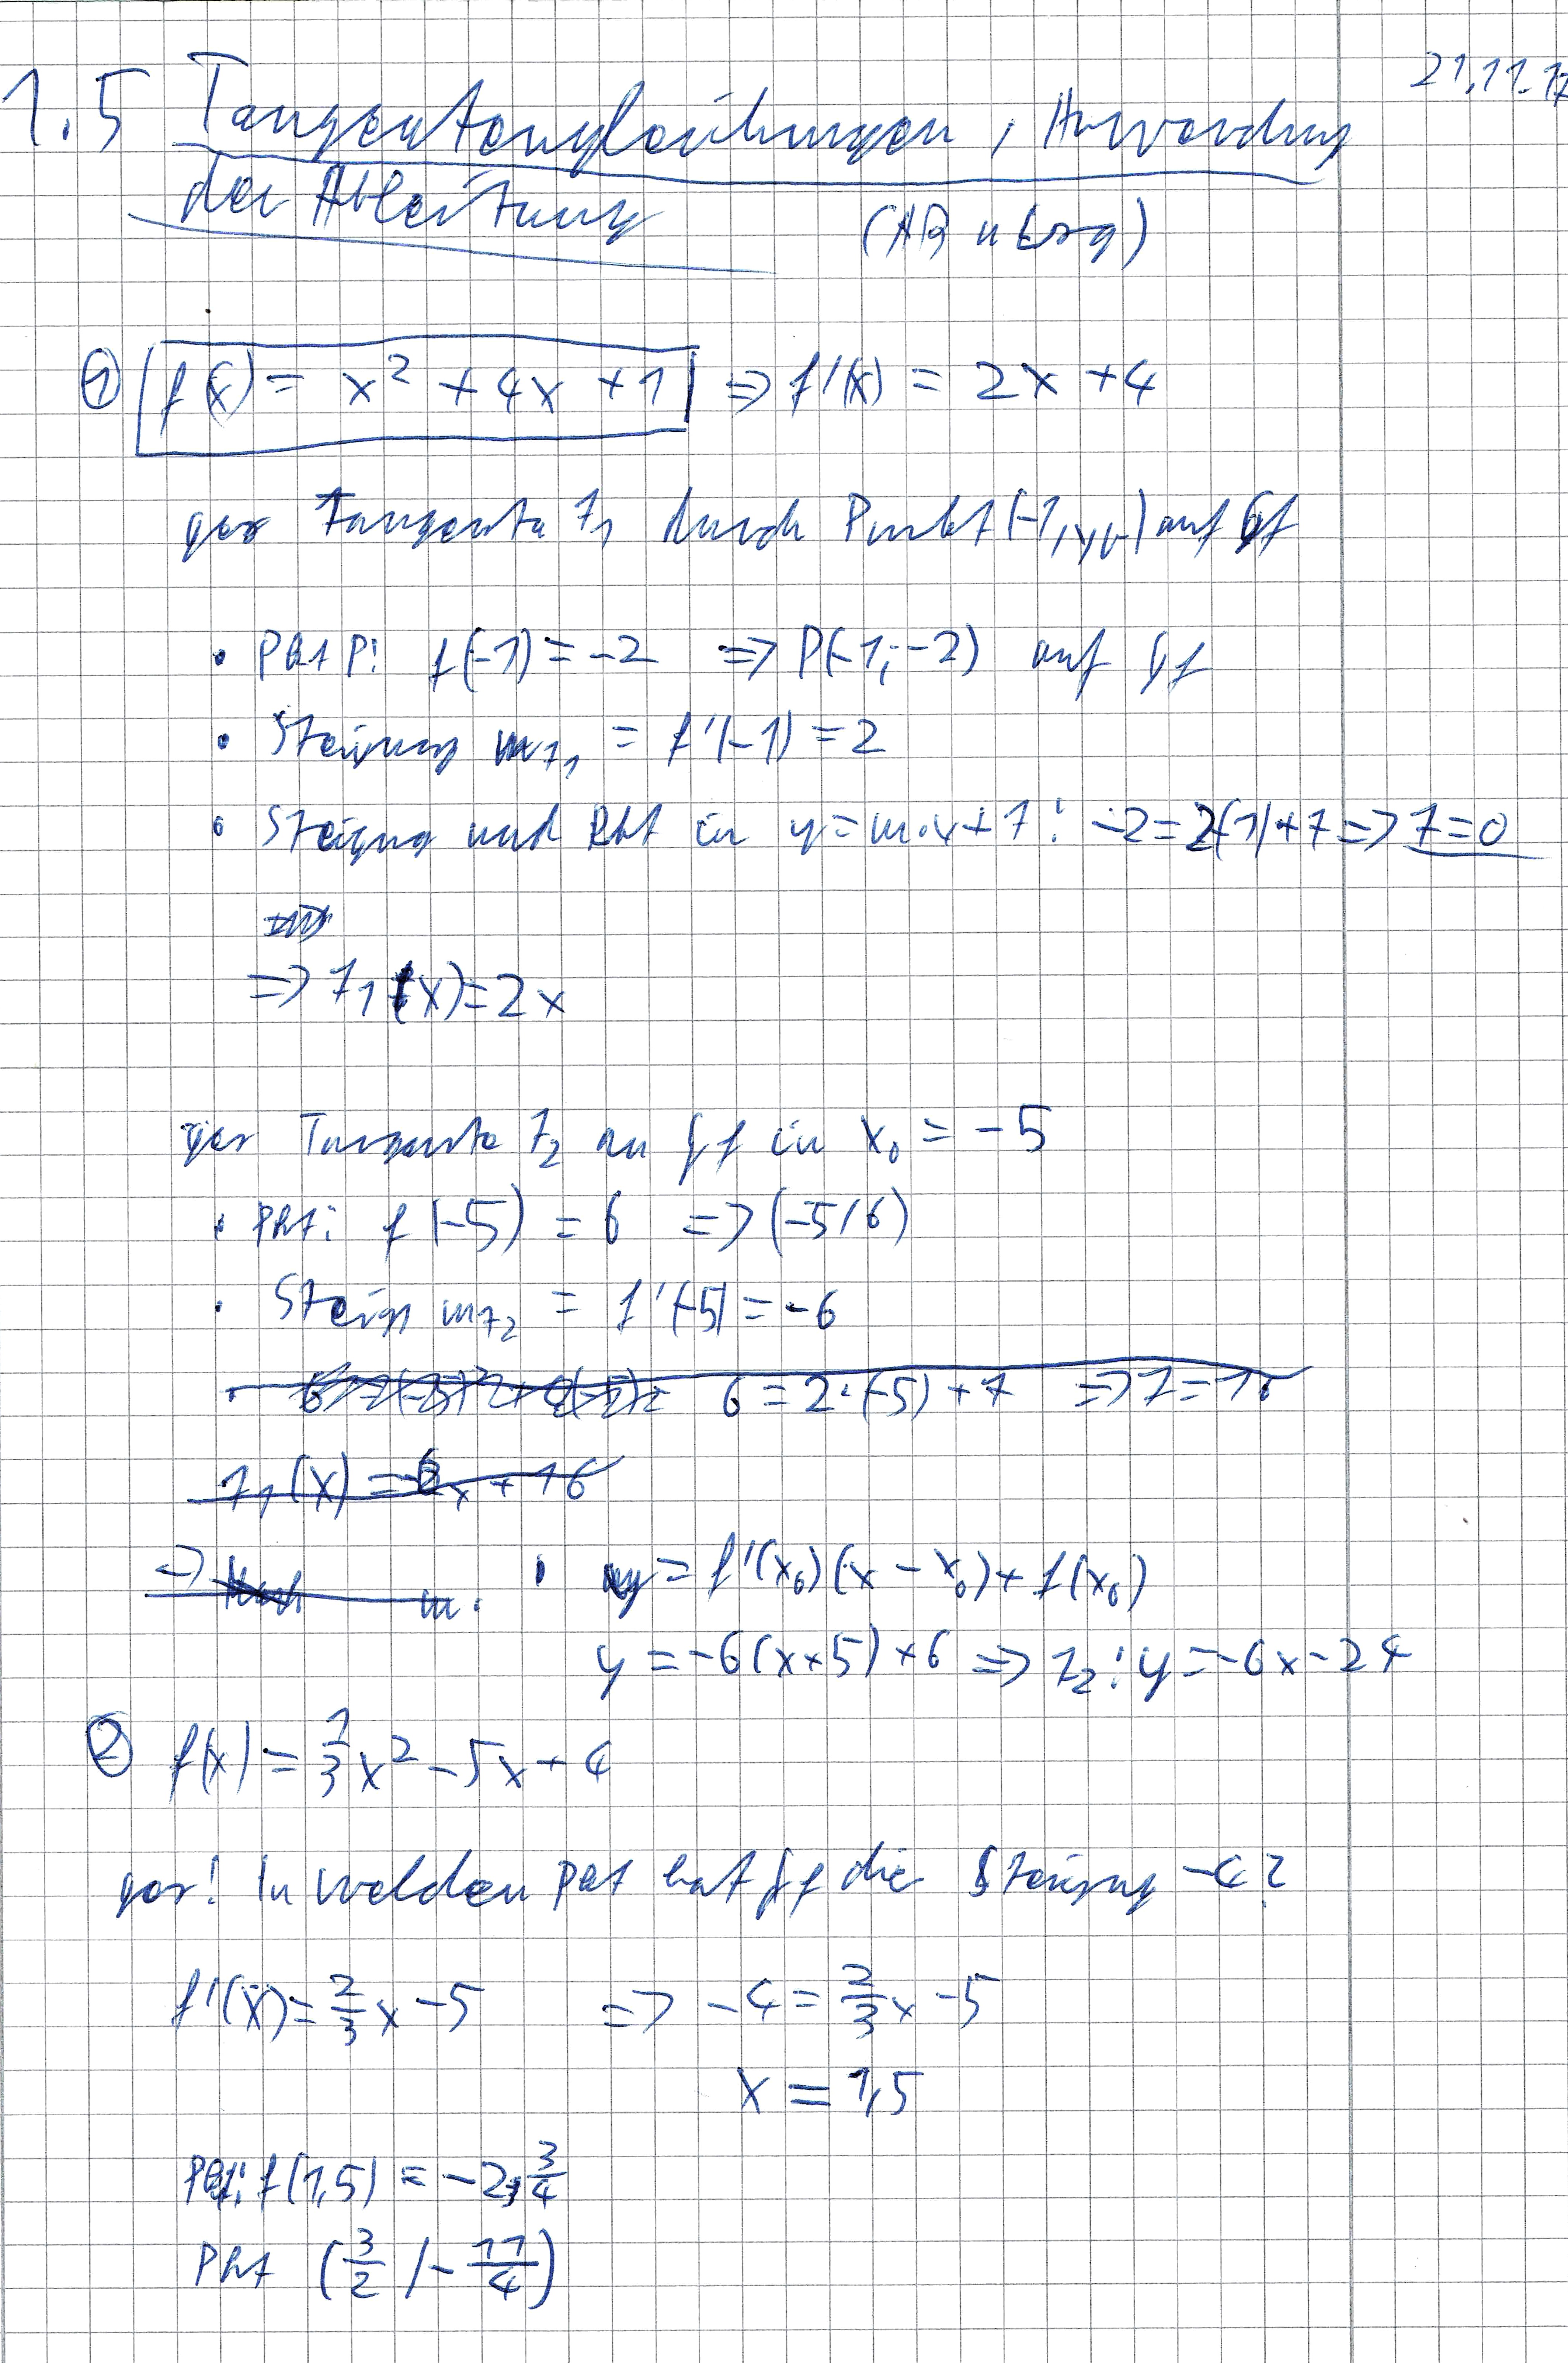 21.11.17
1.5 Tangentengleichungen, Anwendung
der Ableitung
(AB
① f(x) = x² + 4x + 1 => f'(x) = 2x + 4
ges Tangente t₁ durch Punkt (-1, yp) auf Gf
• Pkt P: f(-1) = -2 => P(-1; -2) auf Gf
• Steigung m t₁ = f'(-1) = 2
• Steigung und Pkt in y = m·x + t: -2 = 2(-1) + t => t = 0
=> t₁(x) = 2x
ges Tangente t₂ an Gf in x₀ = -5
• Pkt: f(-5) = 6 => (-5/6)
• Steig m t₂ = f'(-5) = -6
• 6 = 2·(-5) + t => t = 16
t₁(x) = -6x + 16
=> m.
• y = f'(x₀)(x - x₀) + f(x₀)
y = -6(x+5) + 6 => t₂: y = -6x - 24
② f(x) = 1/3 x² - 5x + 4
ges: In welchen Pkt hat Gf die Steigung -4?
f'(x) = 2/3 x - 5 => -4 = 2/3 x - 5
x = 1,5
Pkt: f(1,5) = -2 3/4
Pkt (3/2 / - 11/4)